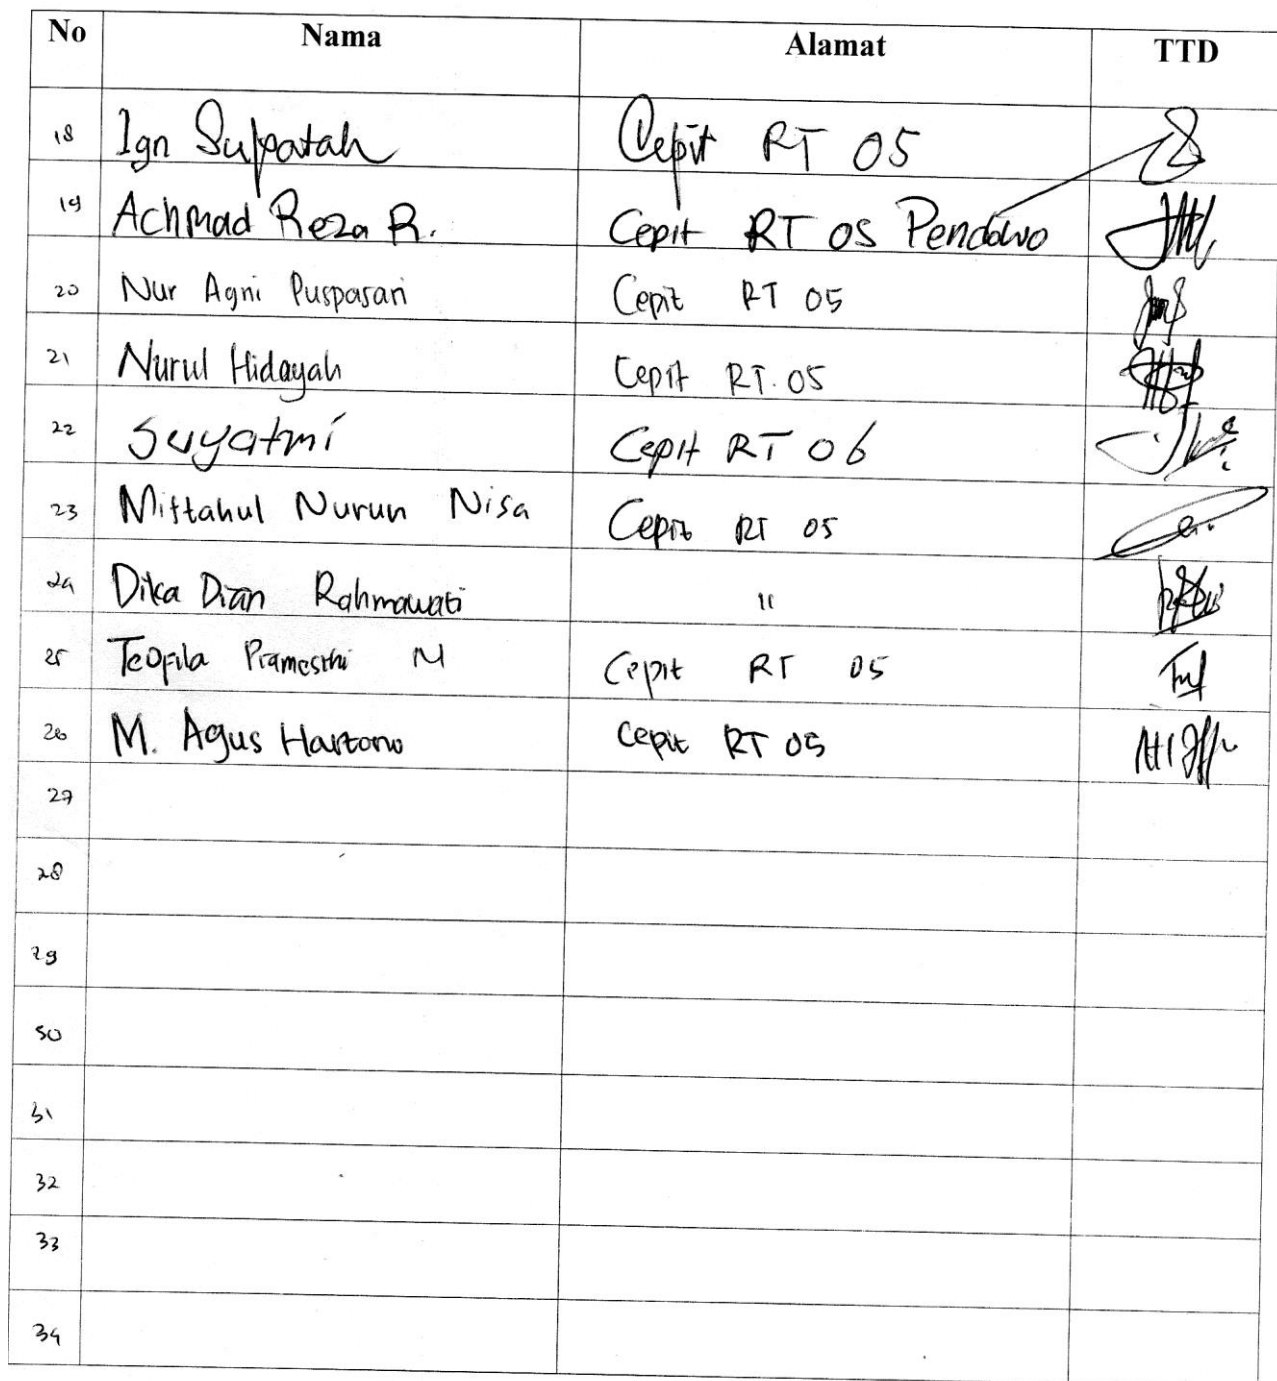 No Nama Alamat TTD
18 Ign Suparah Cepit RT 05
19 Achmad Reza R. Cepit RT 05 Pendowo
20 Nur Agni Pusparari Cepit RT 05
21 Nurul Hidayah Cepit RT. 05
22 Suyatmi Cepit RT 06
23 Miftahul Nurun Nisa Cepit RT 05
24 Dika Dian Rahmawati "
25 Teofila Pramesthi M Cepit RT 05
26 M. Agus Hartono Cepit RT 05
27
28
29
30
31
32
33
34